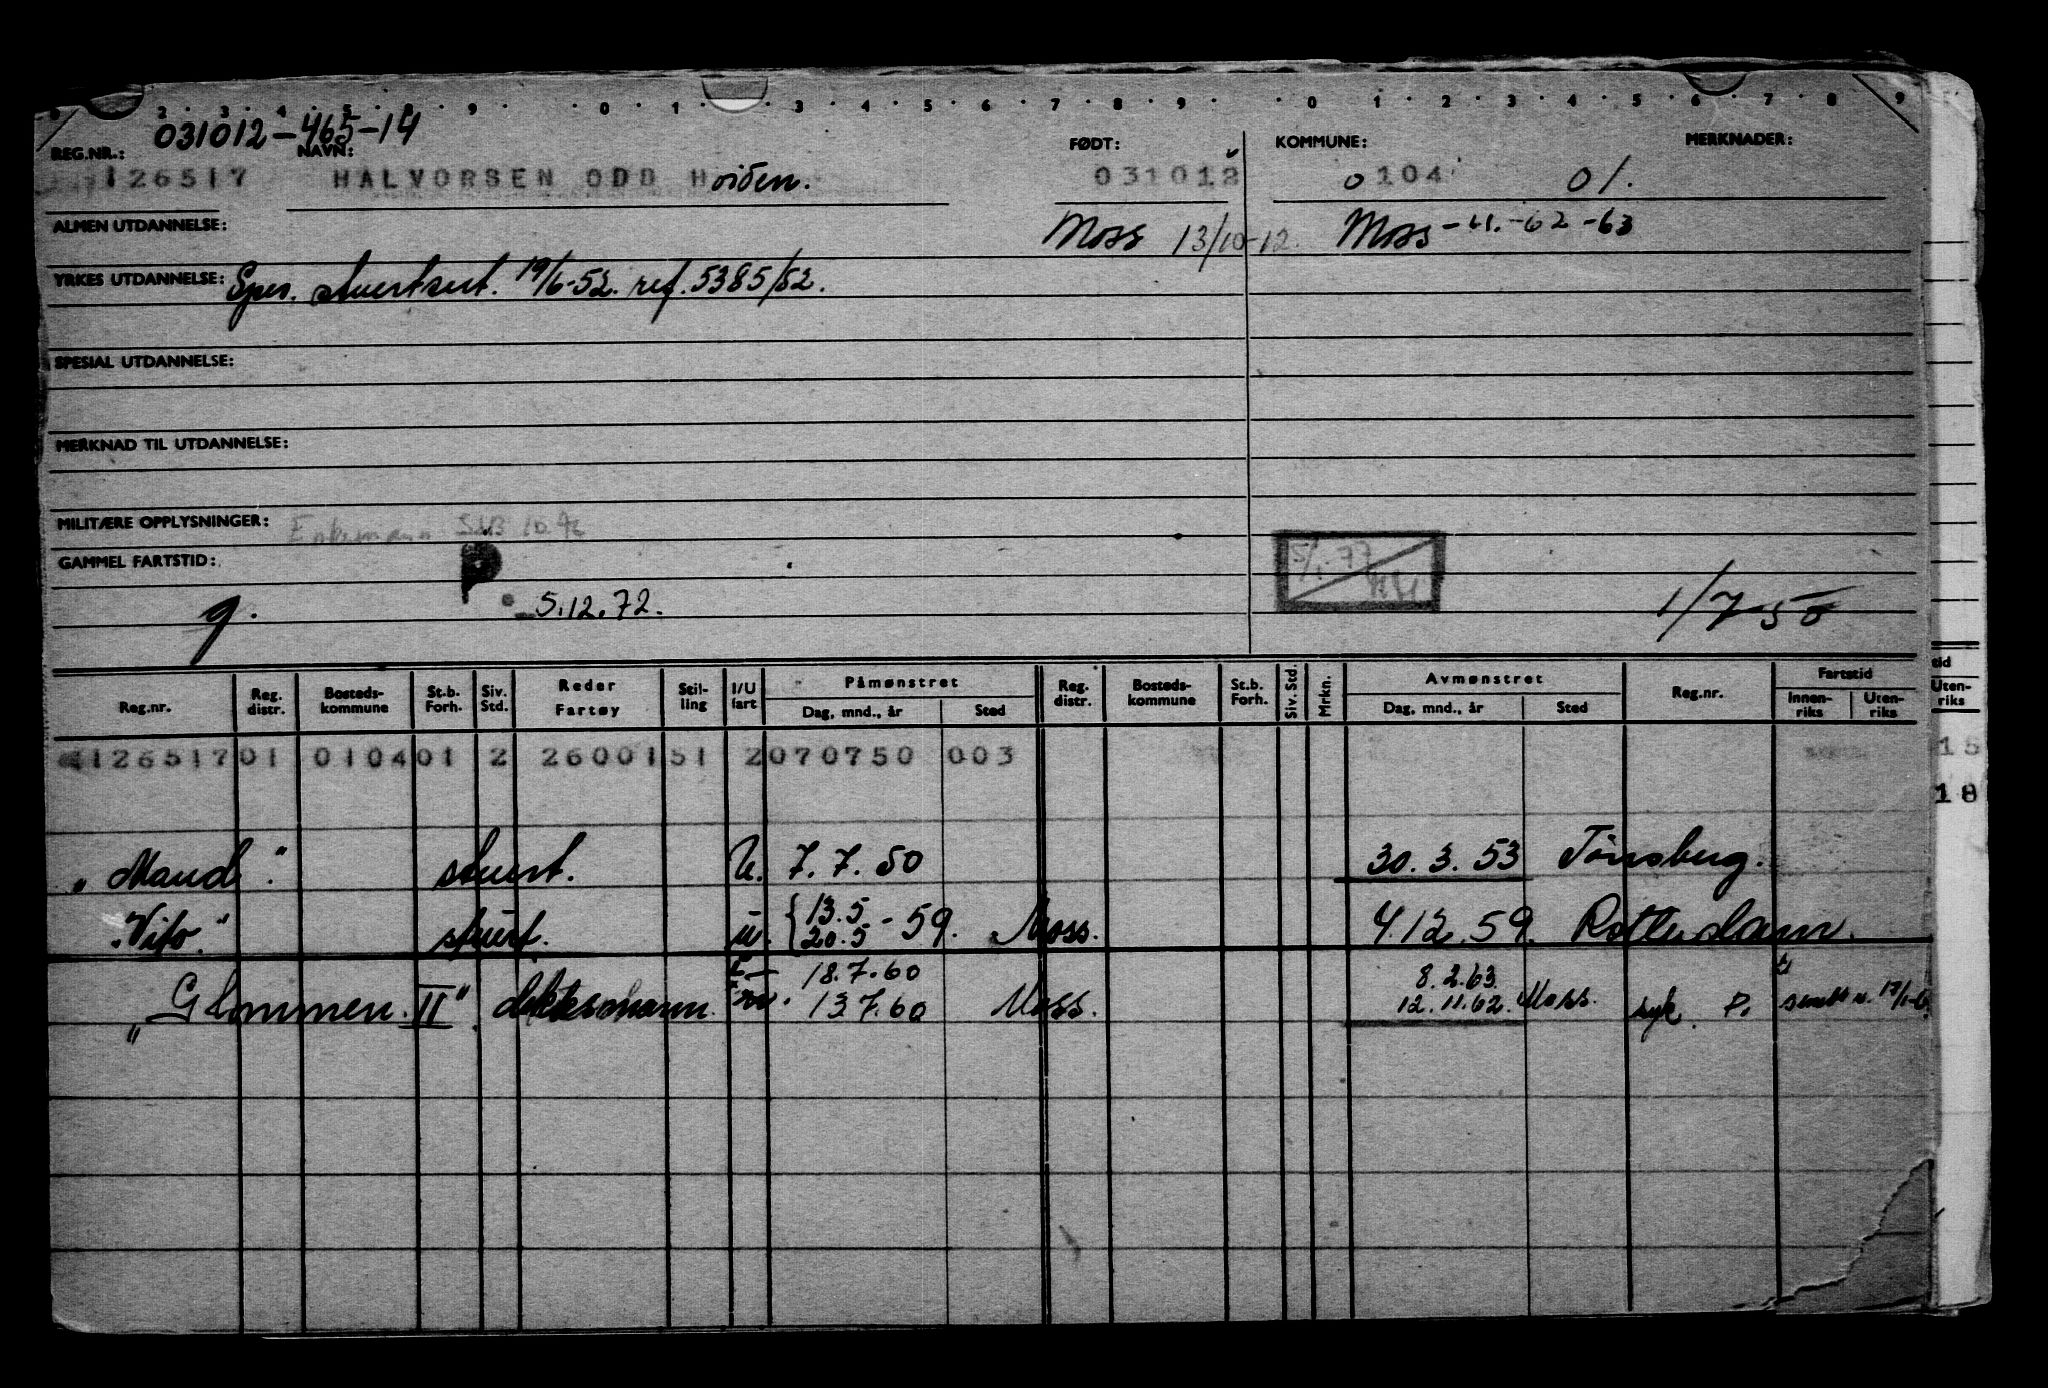 2 3 4 5 8 9 0 1 3 4 5 6 7 8 9 0 1 2 3 4 5 6 7 8 9
031012-465-14
REG.NR.: NAVN: FØDT: KOMMUNE: MERKNADER:
126517 HALVORSEN ODD Hoiden. 031012 0104 01.
ALMEN UTDANNELSE: Moss 13/10-12. Moss -61.-62-63
YRKES UTDANNELSE: Spes. stuertsert. 19/6-52. ref. 5385/52.
SPESIAL UTDANNELSE:
MERKNAD TIL UTDANNELSE:
MILITÆRE OPPLYSNINGER:
GAMMEL FARTSTID: P 5/1.77
g. 5.12.72. 1/7-50
Reg.nr. Reg. distr. Bosteds-kommune St.b. Forh. Siv. Std. Reder Fartøy Stil-ling I/U fart Påmønstret Dag, mnd., år Sted Reg. distr. Bosteds-kommune St.b. Forh. Siv. Std. Mrkn. Avmønstret Dag, mnd., år Sted Reg.nr. Fartstid Innen-riks Uten-riks
tid Uten-riks
126517 01 0104 01 2 26001 51 2 070750 003 15
18
"Maud". stuert. U. 7.7.50 30.3.53 Tönsberg.
"Vito." stuert. u. {13.5 20.5 -59. Moss. 4.12.59. Rotterdam.
18.7.60 8.2.63.
"Glommen II". dekksmann. 13.7.60 Moss. 12.11.62. Moss. syk. P.